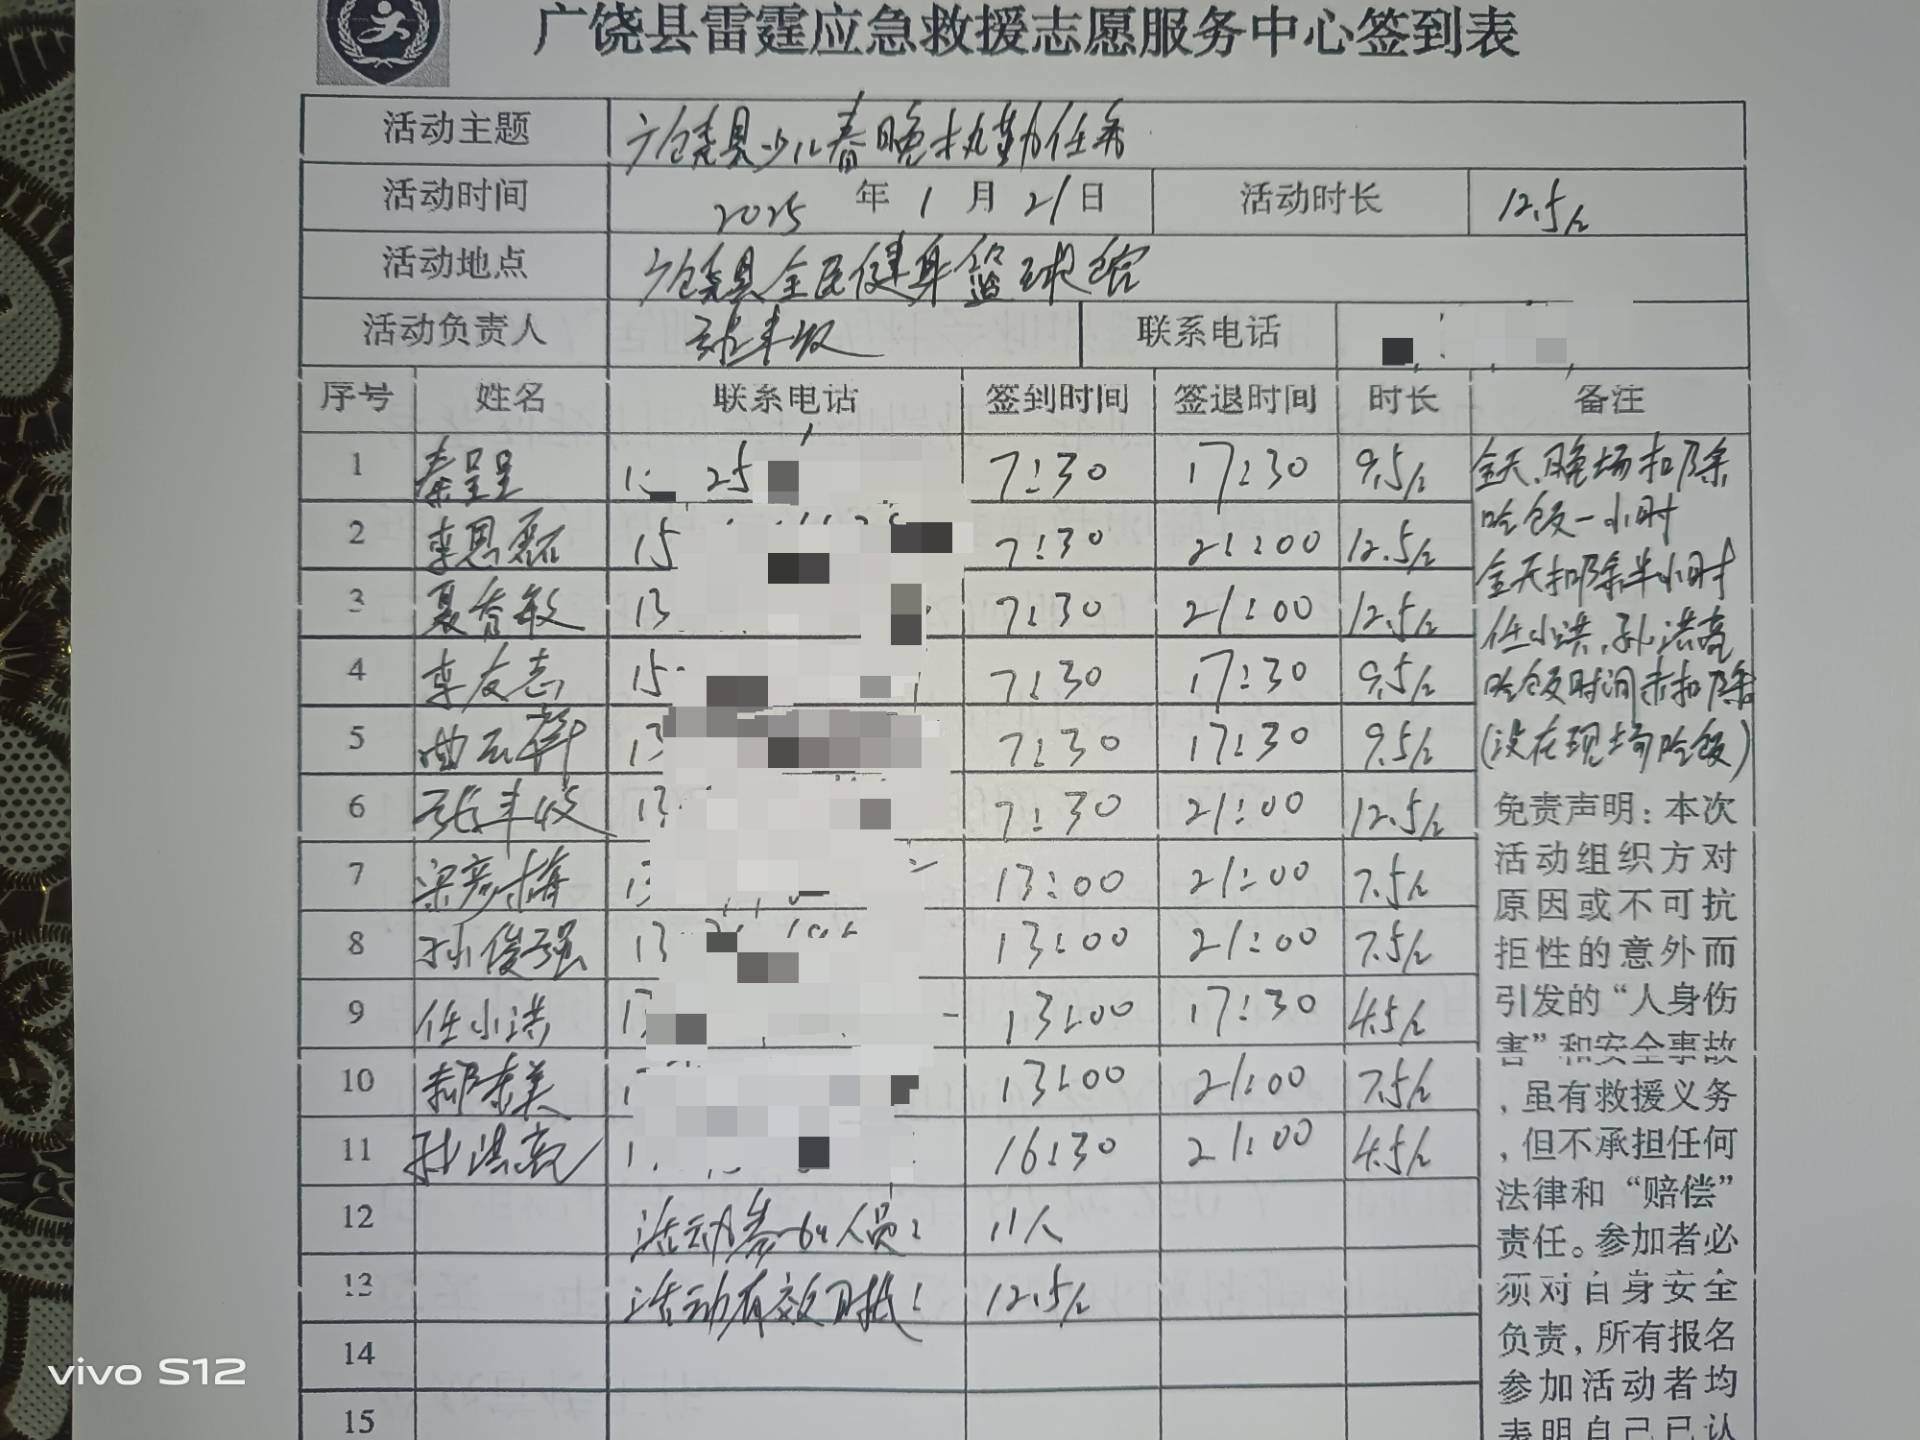 广饶县雷霆应急救援志愿服务中心签到表
活动主题 广饶县少儿春晚执勤任务
活动时间 2025 年 1 月 21 日 活动时长 12.5h
活动地点 广饶县全民健身篮球馆
活动负责人 张丰收 联系电话
序号 姓名 联系电话 签到时间 签退时间 时长 备注
1 秦呈呈 7:30 17:30 9.5h
2 李恩磊 15 7:30 21:00 12.5h
3 夏春敏 13 7:30 21:00 12.5h
4 李友志 15 7:30 17:30 9.5h
5 曲云 13 7:30 17:30 9.5h
6 张丰收 13 7:30 21:00 12.5h
7 梁彦梅 13:00 21:00 7.5h
8 孙俊强 13 13:00 21:00 7.5h
9 任小洪 13:00 17:30 4.5h
10 郝东美 13:00 21:00 7.5h
11 孙洪亮 16:30 21:00 4.5h
12 活动参加人员: 11人
13 活动有效时长: 12.5h
14
15
全天、晚场扣除
吃饭一小时
全天扣除半小时
任小洪、孙洪亮
吃饭时间未扣除
(没在现场吃饭)
免责声明：本次
活动组织方对
原因或不可抗
拒性的意外而
引发的“人身伤
害”和安全事故
，虽有救援义务
，但不承担任何
法律和“赔偿”
责任。参加者必
须对自身安全
负责，所有报名
参加活动者均
表明自己已认
vivo S12